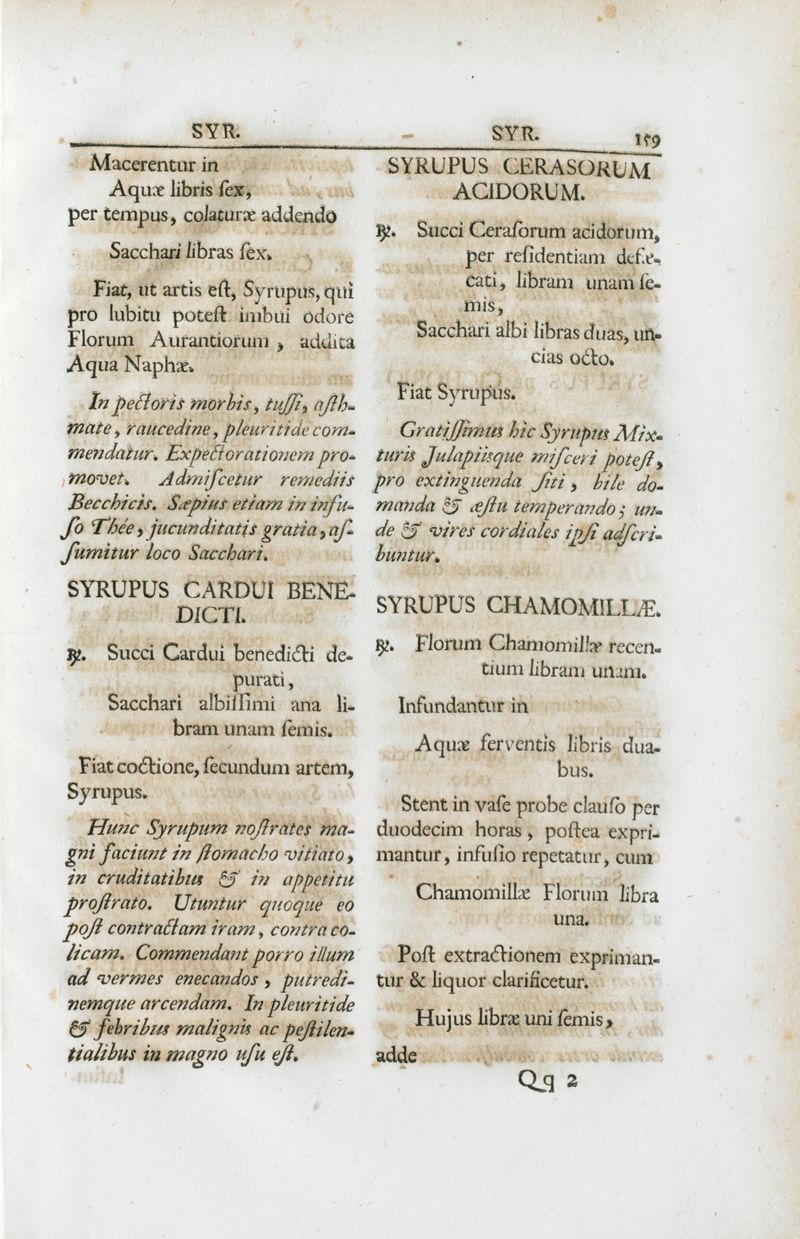 SYR.
Macerentur in
Aquæ libris ſex,
per tempus, colaturæ addendo
Sacchari libras ſex.
Fiat, ut artis eſt, Syrupus, qui
pro lubitu poteſt imbui odore
Florum Aurantiorum, addita
Aqua Naphæ.
In pectoris morbis, tuſſi, aſth-
mate, raucedine, pleuritide com-
mendatur. Expectorationem pro-
movet. Admiſcetur remediis
Becchicis. Sæpius etiam in infu-
ſo Thée, jucunditatis gratia, aſ-
ſumitur loco Sacchari.
SYRUPUS CARDUI BENE-
DICTI.
℞. Succi Cardui benedicti de-
purati,
Sacchari albiſſimi ana li-
bram unam ſemis.
Fiat coctione, ſecundum artem,
Syrupus.
Hunc Syrupum noſtrates ma-
gni faciunt in ſtomacho vitiato,
in cruditatibus & in appetitu
proſtrato. Utuntur quoque eo
poſt contractam iram, contra co-
licam. Commendant porro illum
ad vermes enecandos, putredi-
nemque arcendam. In pleuritide
& febribus malignis ac peſtilen-
tialibus in magno uſu eſt.
SYR.
159
SYRUPUS CERASORUM
ACIDORUM.
℞. Succi Ceraſorum acidorum,
per reſidentiam defæ-
cati, libram unam ſe-
mis,
Sacchari albi libras duas, un-
cias octo.
Fiat Syrupus.
Gratiſſimus hic Syrupus Mix-
turis Julapiisque miſceri poteſt,
pro extinguenda ſiti, bile do-
manda & æſtu temperando; un-
de & vires cordiales ipſi adſcri-
buntur.
SYRUPUS CHAMOMILLÆ.
℞. Florum Chamomillæ recen-
tium libram unam.
Infundantur in
Aquæ ferventis libris dua-
bus.
Stent in vaſe probe clauſo per
duodecim horas, poſtea expri-
mantur, infuſio repetatur, cum
Chamomillæ Florum libra
una.
Poſt extractionem expriman-
tur & liquor clarificetur.
Hujus libræ uni ſemis,
adde
Qq 2